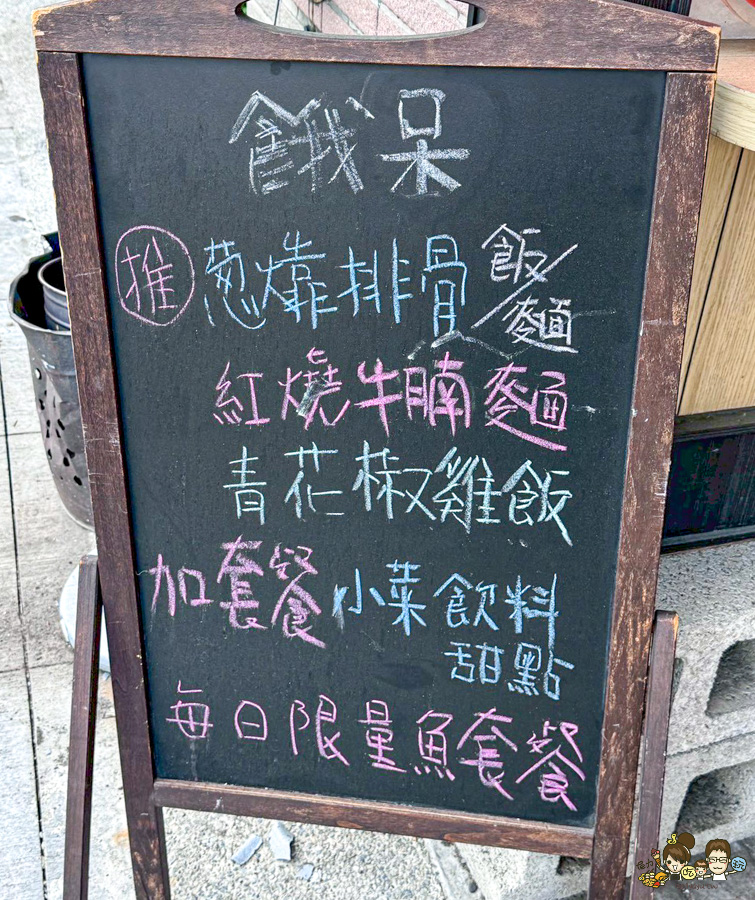 餓呆
推 葱爊排骨飯/麵
紅燒牛腩麵
青花椒雞飯
加套餐小菜飲料
甜點
每日限量魚套餐